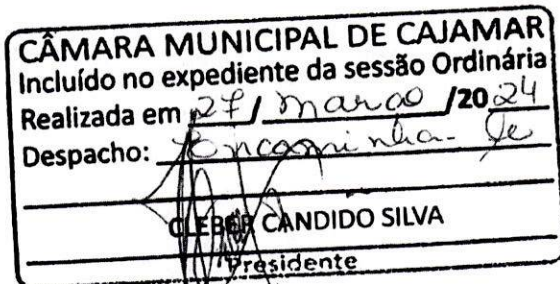 CÂMARA MUNICIPAL DE CAJAMAR
Incluído no expediente da sessão Ordinária
Realizada em 27 / março /20 24
Despacho: Encaminha-se
CLEBER CANDIDO SILVA
Presidente